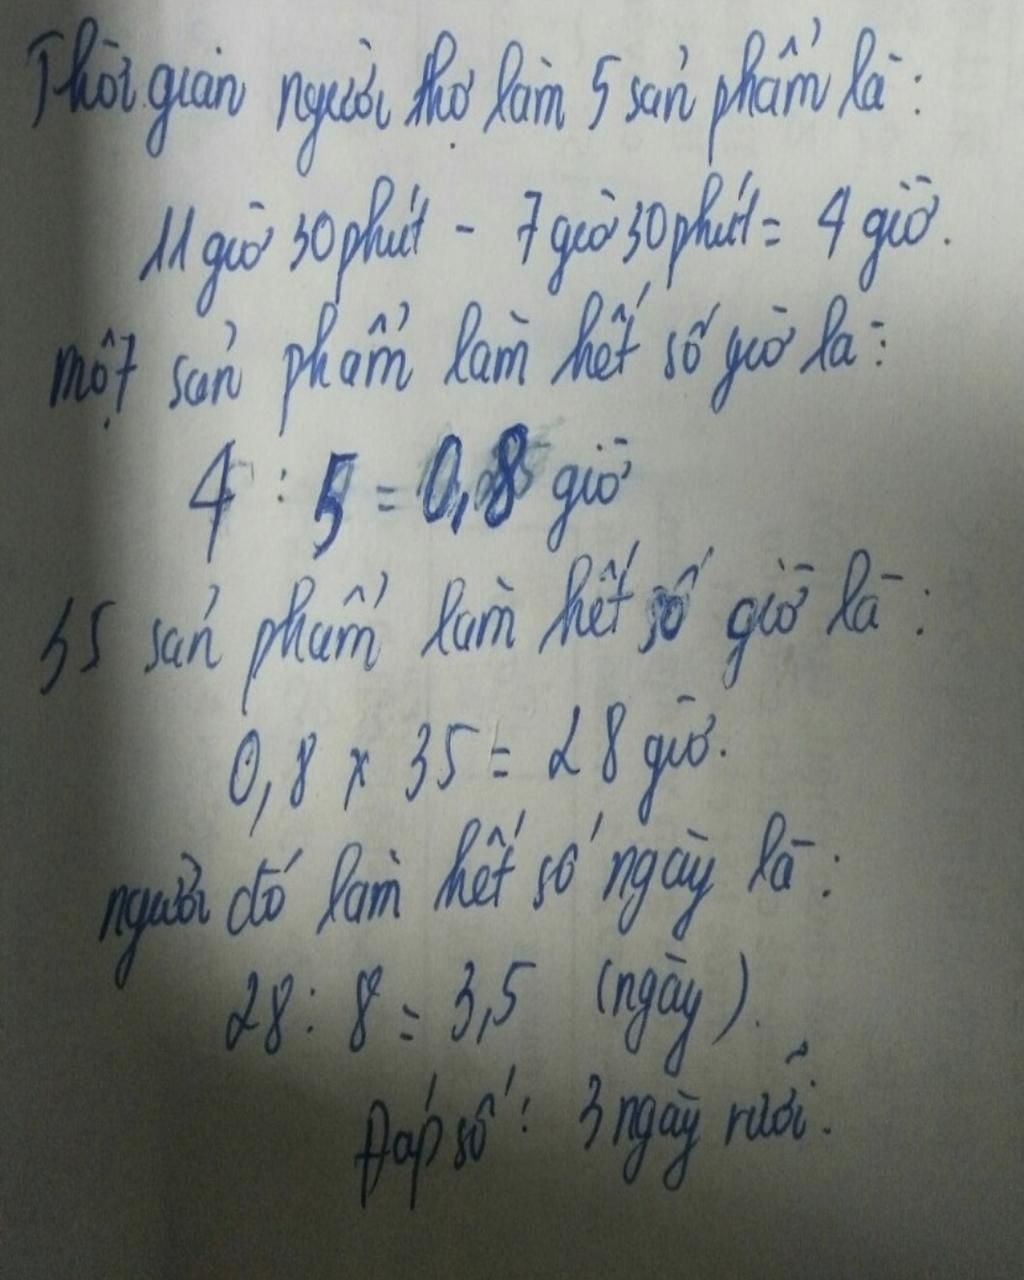 Thời gian người thợ làm 5 sản phẩm là:
11 giờ 30 phút - 7 giờ 30 phút = 4 giờ.
một sản phẩm làm hết số giờ là:
4 : 5 = 0,8 giờ
35 sản phẩm làm hết số giờ là:
0,8 x 35 = 28 giờ.
người đó làm hết số ngày là:
28 : 8 = 3,5 (ngày).
Đáp số: 3 ngày rưỡi.